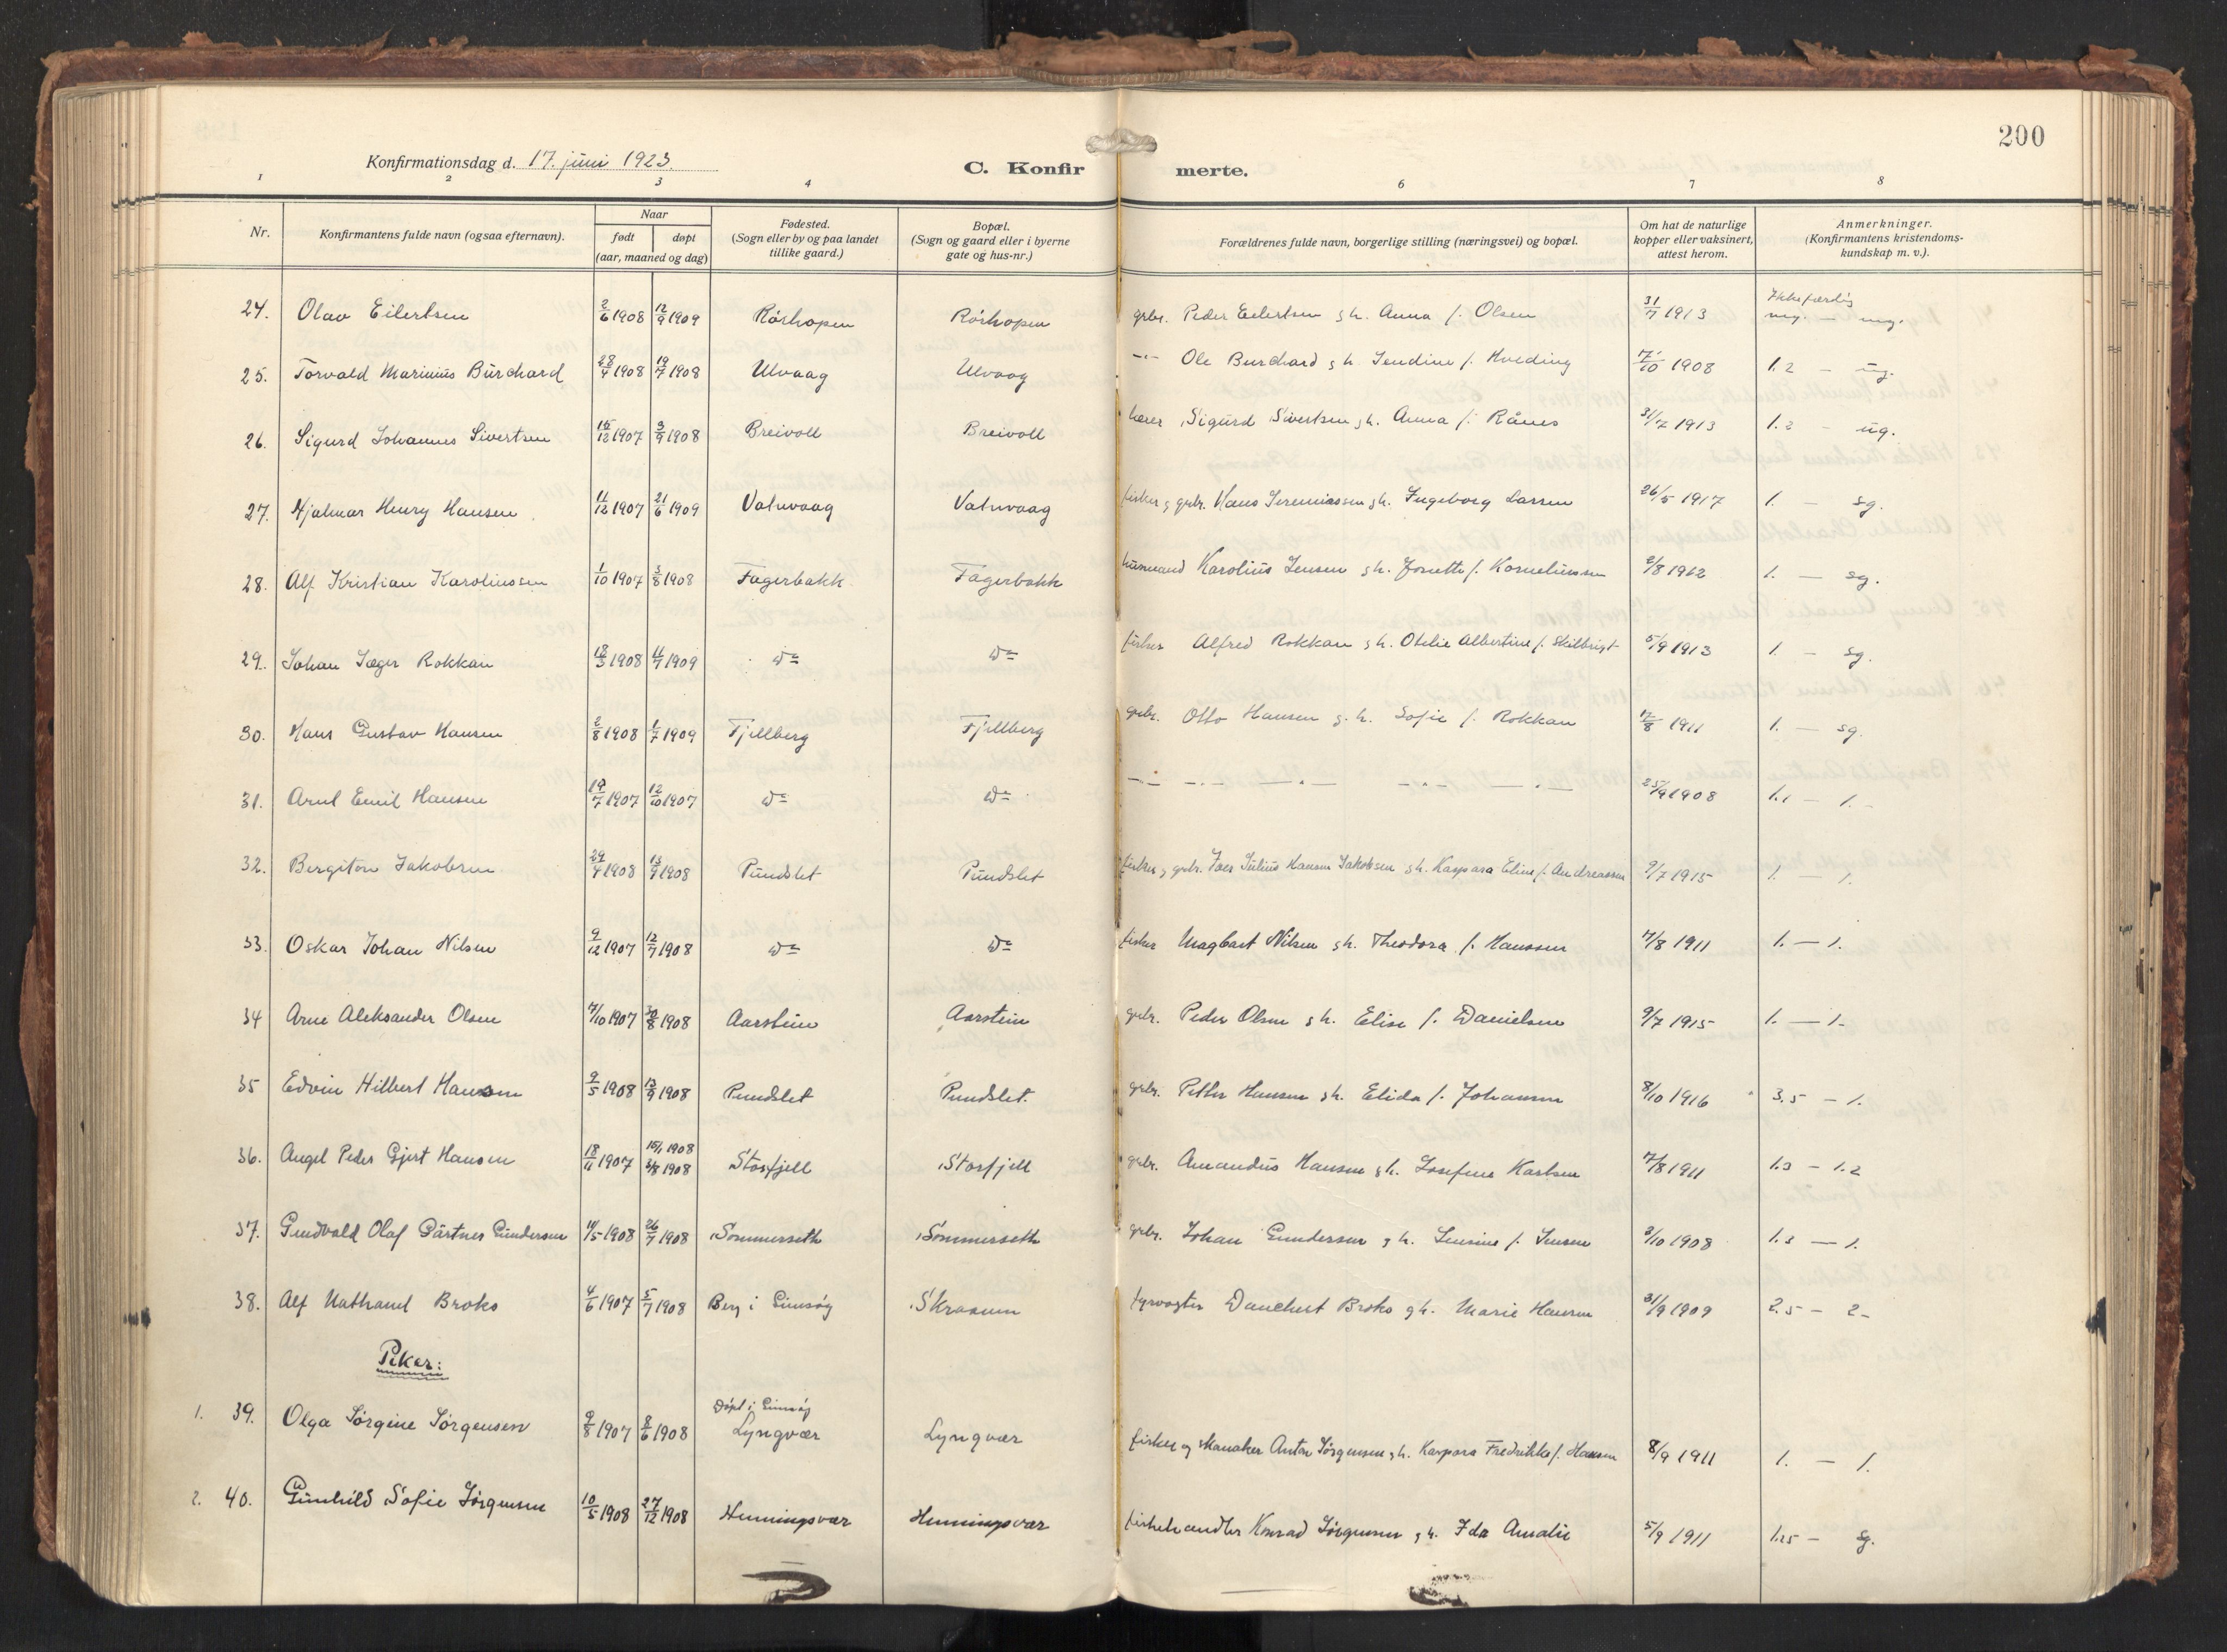 200
Konfirmationsdag d. 17. juni 1923.
C. Konfirmerte.
1 2 3 4 6 7 8
Nr.
Konfirmantens fulde navn (ogsaa efternavn).
Naar
født døpt
(aar, maaned og dag)
Fødested.
(Sogn eller by og paa landet
tillike gaard.)
Bopæl.
(Sogn og gaard eller i byerne
gate og hus-nr.)
Forældrenes fulde navn, borgerlige stilling (næringsvei) og bopæl.
Om hat de naturlige
kopper eller vaksinert,
attest herom.
Anmerkninger.
(Konfirmantens kristendoms-
kundskap m. v.).
24. Olav Eilertsen 2/6 1908 12/9 1909 Rörhopen Rörhopen grbr. Peder Eilertsen g h. Anna f. Olsen 31/7 1913 Ikke færdig mg. — mg.
25. Torvald Marinius Burchard 28/4 1908 19/7 1908 Ulvaag Ulvaag -"- Ole Burchard g h. Jendine f. Hveding 7/10 1908 1.2 — ug.
26. Sigurd Johannes Sivertsen 15/12 1907 3/9 1908 Breivoll Breivoll lærer Sigurd Sivertsen g h. Anna f. Rånes 31/7 1913 1.2 - ug.
27. Hjalmar Henry Hansen 11/12 1907 21/6 1909 Vatnvaag Vatnvaag fisker g grbr. Hans Jeremiassen g h. Ingeborg Larsen 26/5 1917 1. — sg.
28. Alf Kristian Karoliussen 1/10 1907 3/8 1908 Fagerbakk Fagerbakk husmand Karolius Jensen g h. Jonette f. Korneliussen 2/8 1912 1. — sg.
29. Johan Jæger Rokkan 18/3 1908 11/7 1909 Do Do fisker Alfred Rokkan g h. Otelie Albertine f. Skilbrigt 5/9 1913 1. — sg.
30. Hans Gustav Hansen 2/8 1908 1/7 1909 Fjellberg Fjellberg grbr. Otto Hansen g. h. Sofie f. Rokkan 17/8 1911 1. — sg.
31. Arnt Emil Hansen 19/7 1907 12/10 1907 Do Do —"— —"— —"— —"— —"— 25/9 1908 1.1 — 1.-
32. Bergiton Jakobsen 29/4 1908 13/9 1908 Pundslet Pundslet fisker g grbr. Joer Julius Hansen Jakobsen g h. Kaspara Eline f. Andreassen 9/7 1915 1. — 1.
33. Oskar Johan Nilsen 9/12 1907 12/7 1908 Do Do fisker Magbart Nilsen g h. Theodora f. Hanssen 7/8 1911 1. — 1.
34 Arne Aleksander Olsen 7/10 1907 30/8 1908 Aarstein Aarstein grbr. Peder Olsen g h. Elise f. Danielsen 9/7 1915 1. — 1-
35 Edvin Hilbert Hansen 9/5 1908 13/9 1908 Pundslet Pundslet. grbr. Petter Hansen g h. Elida f. Johansen 8/10 1916 3.5 — 1.
36. Angel Peder Gjert Hansen 18/11 1907 15/1 1908 2/8 1908 Storfjell Storfjell grbr. Amandus Hansen g h. Josefine Karlsen 7/8 1911 1.3 — 1.2
37. Gundvald Olaf Gärtner Gundersen 11/5 1908 26/7 1908 Sommerseth Sommerseth grbr. Johan Gundersen g h. Jensine f. Jensen 3/10 1908 1.3 — 1.
38. Alf Nathanel Broks 4/6 1907 5/7 1908 Berg i Gimsøy Skraaun fyrvogter Danchert Broks g h. Marie Hansen 31/9 1909 2.5 — 2-
Piker:
1. 39. Olga Jørgine Jørgensen 9/8 1907 8/6 1908 Döpt i Gimsöy Lyngvær Lyngvær fisker og skomaker Anton Jørgensen g h. Kaspara Fredrikke f. Hansen 8/9 1911 1. — 1.
2. 40. Gunhild Sofie Jørgensen 10/5 1908 27/12 1908 Henningsvær Henningsvær fiskehandler Konrad Jørgensen g h. Ida Amalie 5/9 1911 1.25 — sg.